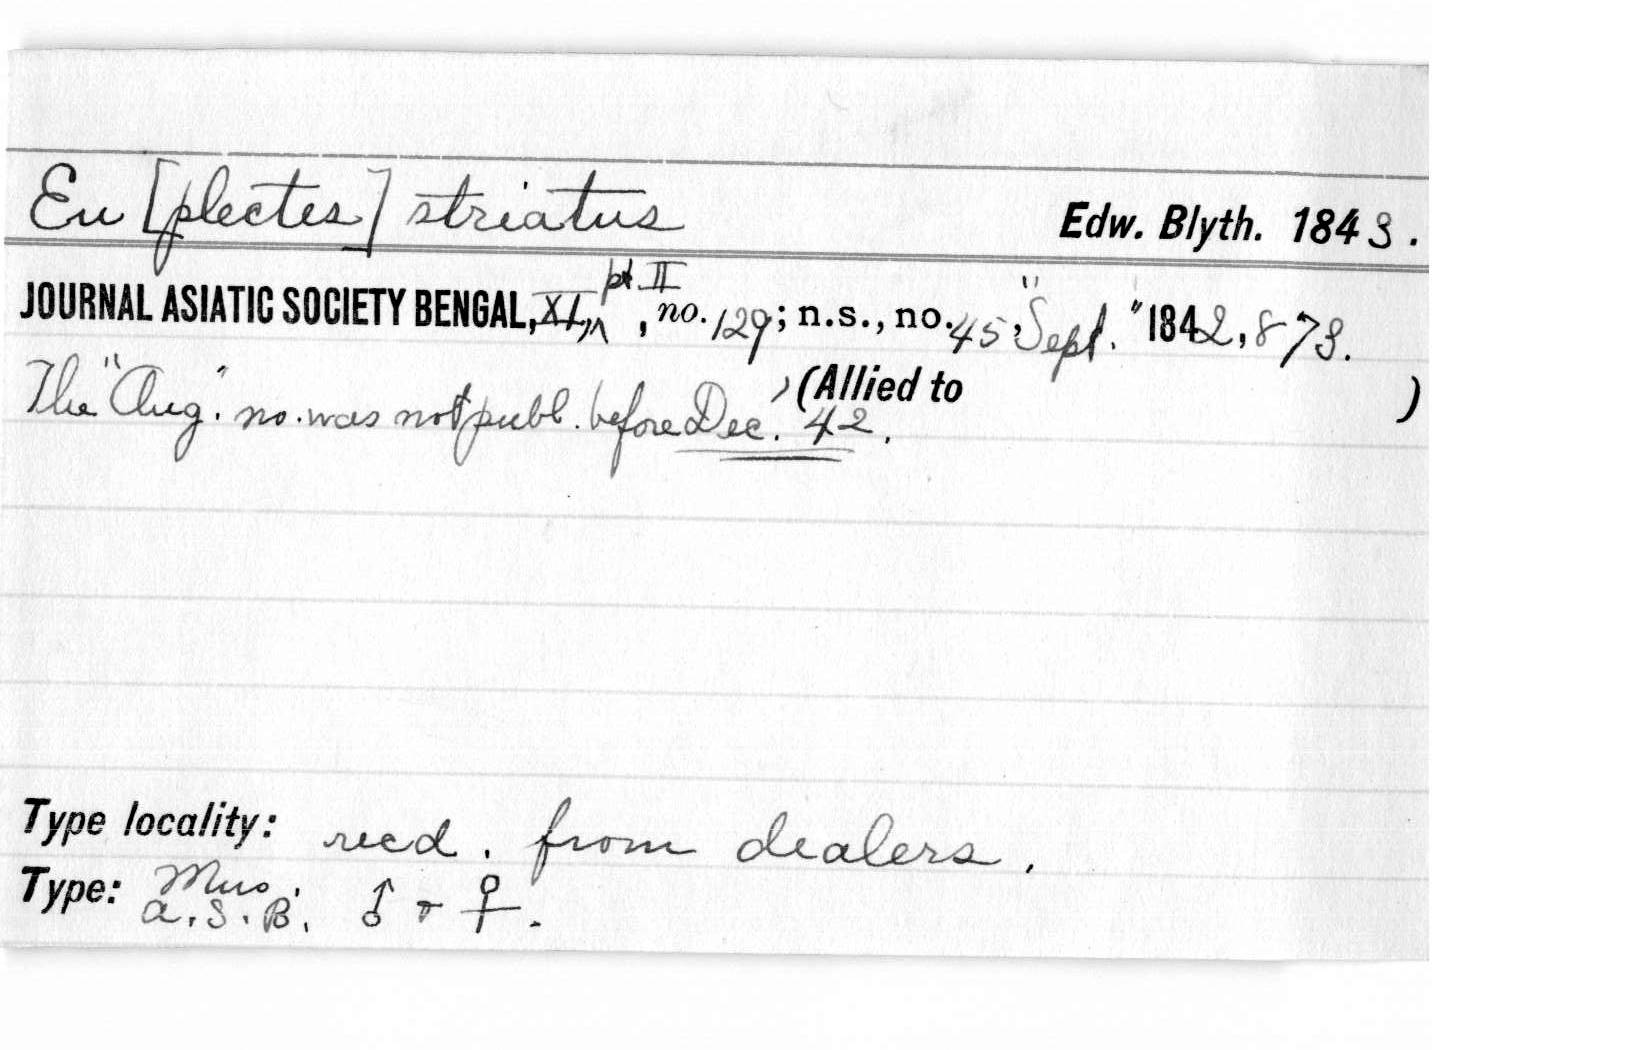 Eu [plectes] striatus
Edw. Blyth. 1843.
JOURNAL ASIATIC SOCIETY BENGAL, XI, pt II, no. 129; n.s., no. 45, "Sept." 1842, 873.
(Allied to )
The "Aug." no. was not publ. before Dec. '42.
Type locality: recd. from dealers.
Type: Mus. A.S.B. ♂ + ♀.